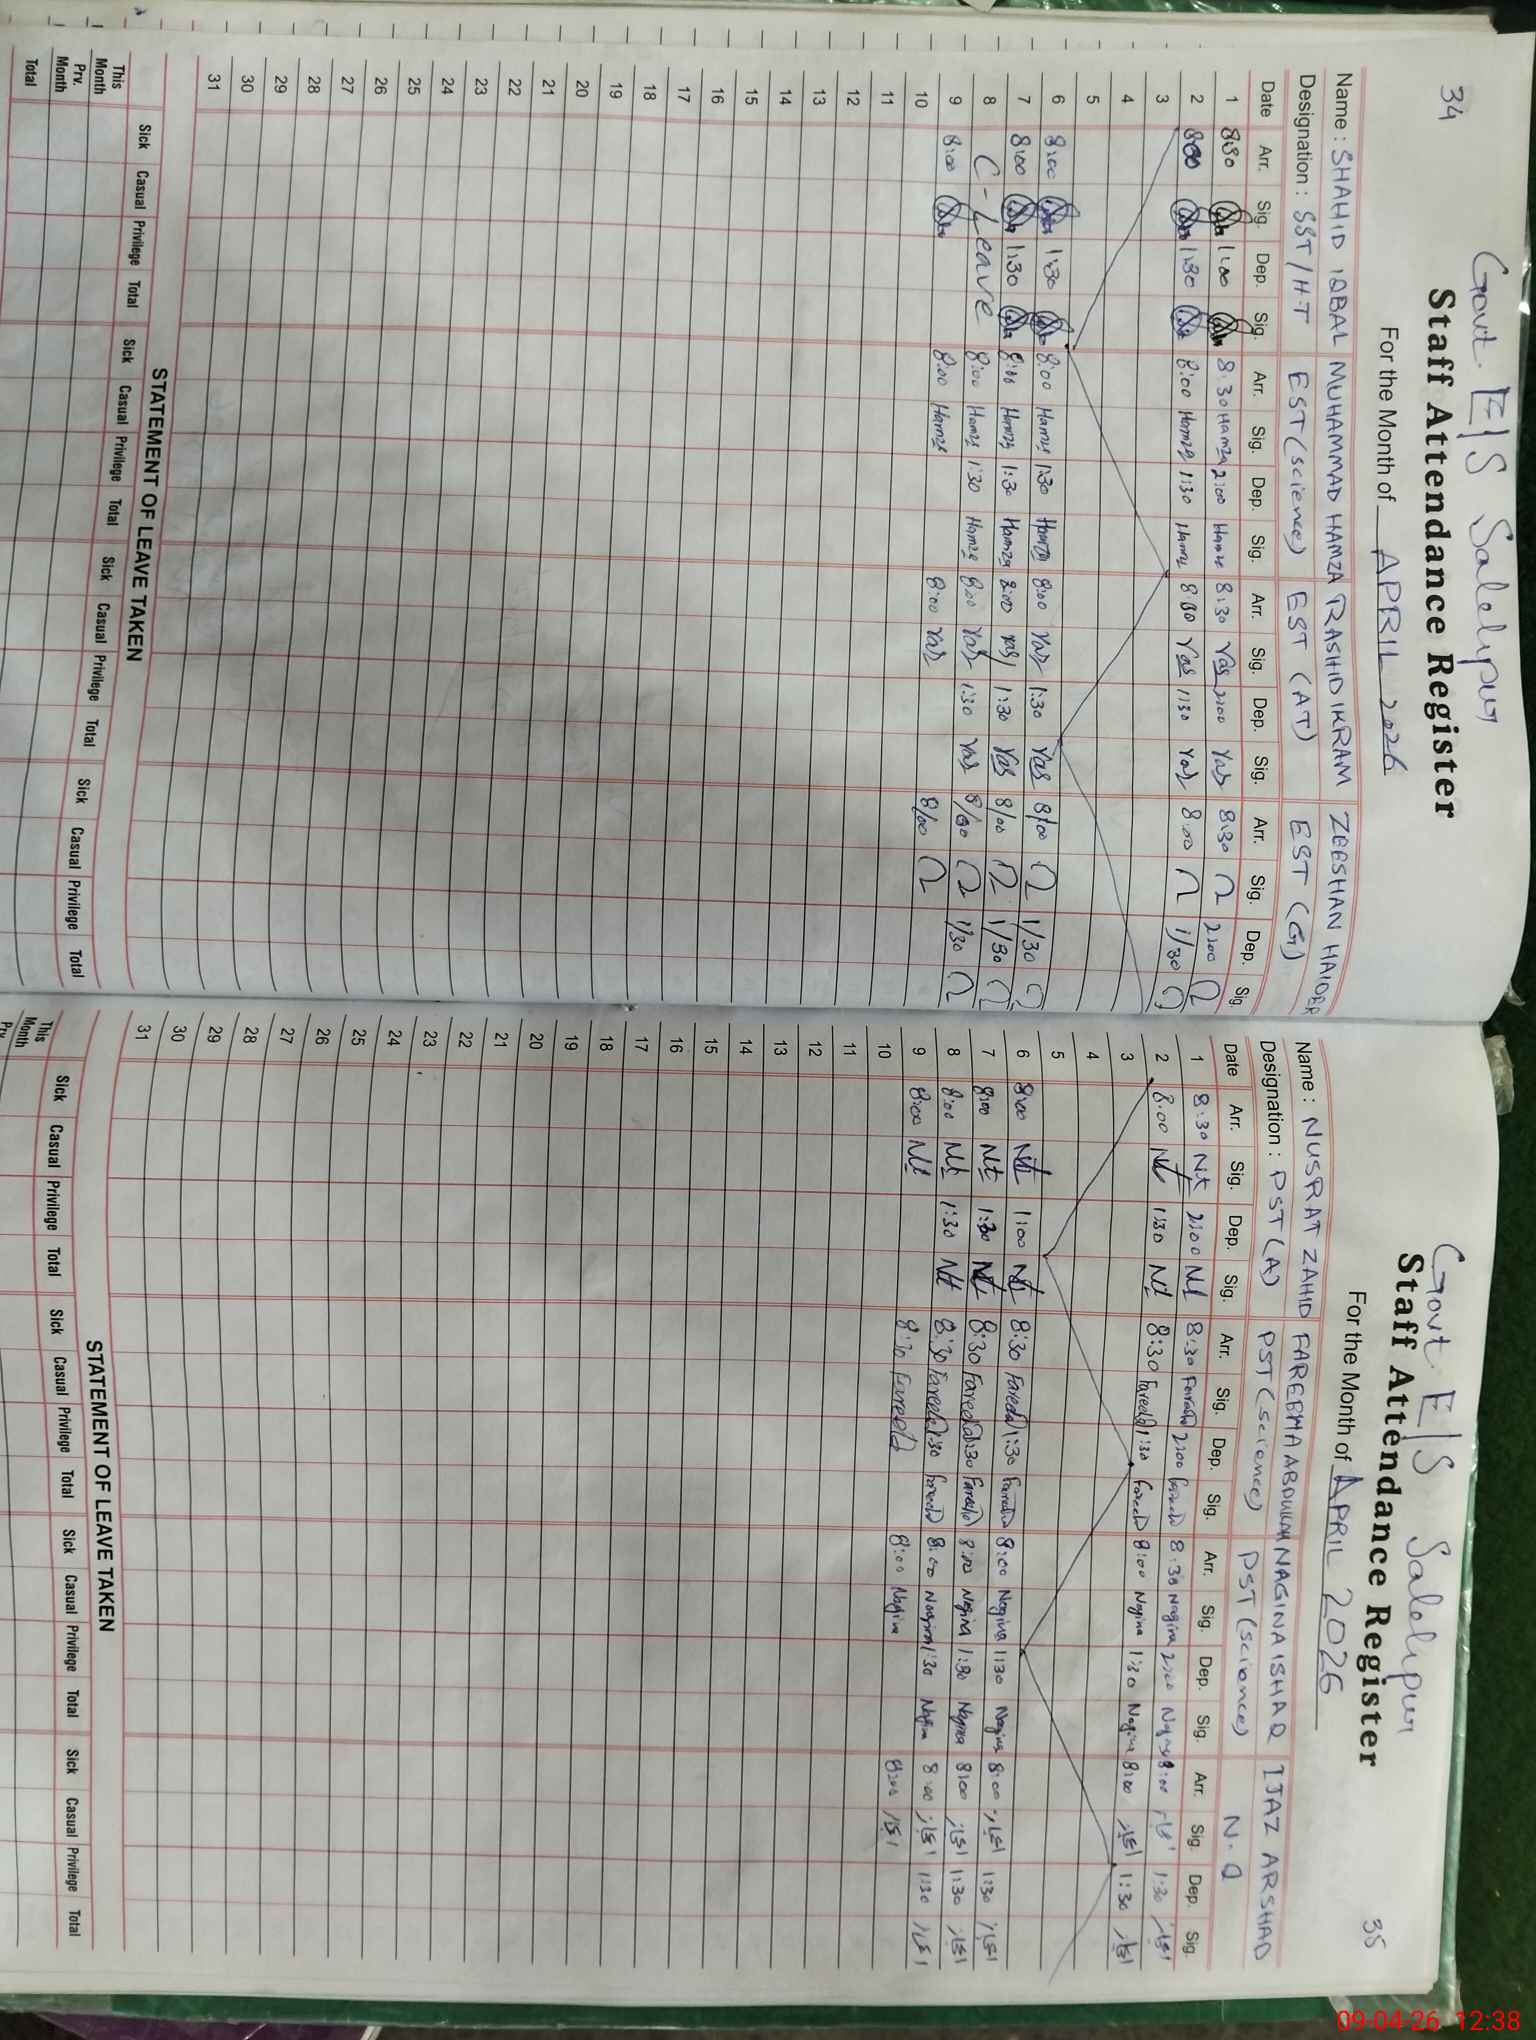 34
Govt. E/S Salehpur
Staff Attendance Register
For the Month of APRIL 2026
Name : SHAHID IQBAL MUHAMMAD HAMZA RASHID IKRAM ZEESHAN HAIDER
Designation : SST/H.T EST (science) EST (AT) EST (G)
Date Arr. Sig. Dep. Sig. Arr. Sig. Dep. Sig. Arr. Sig. Dep. Sig. Arr. Sig. Dep. Sig.
1 8:30 1:00 8:30 Hamza 2:00 Hamza 8:30 Yas 2:00 Yas 8:30 2:00
2 8:00 1:30 8:00 Hamza 1:30 Hamza 8:00 Yas 1:30 Yas 8:00 1/30
3
4
5
6 8:00 1:30 8:00 Hamza 1:30 Hamza 8:00 Yas 1:30 Yas 8/00 1/30
7 8:00 1:30 8:00 Hamza 1:30 Hamza 8:00 Yas 1:30 Yas 8/00 1/30
8 C-Leave 8:00 Hamza 1:30 Hamza 8:00 Yas 1:30 Yas 8/00 1/30
9 8:00 8:00 Hamza 8:00 Yas 8/00
10
11
12
13
14
15
16
17
18
19
20
21
22
23
24
25
26
27
28
29
30
31
STATEMENT OF LEAVE TAKEN
Sick Casual Privilege Total Sick Casual Privilege Total Sick Casual Privilege Total Sick Casual Privilege Total
This Month
Prv. Month
Total
35
Govt. E/S Salehpur
Staff Attendance Register
For the Month of APRIL 2026
Name : NUSRAT ZAHID FAREEHA ABDULLAH NAGINA ISHAQ IJAZ ARSHAD
Designation : PST (A) PST (science) PST (science) N.Q
Date Arr. Sig. Dep. Sig. Arr. Sig. Dep. Sig. Arr. Sig. Dep. Sig. Arr. Sig. Dep. Sig.
1 8:30 Nt 2:00 Nt 8:30 2:00 8:30 Nagina 2:00 Nagina 8:00 اعجاز 1:30 اعجاز
2 8:00 Nt 1:30 Nt 8:30 1:30 8:00 Nagina 1:30 Nagina 8:00 اعجاز 1:30 اعجاز
3
4
5
6 8:00 Nt 1:00 Nt 8:30 1:30 8:00 Nagina 1:30 Nagina 8:00 اعجاز 1:30 اعجاز
7 8:00 Nt 1:30 Nt 8:30 1:30 8:00 Nagina 1:30 Nagina 8:00 اعجاز 1:30 اعجاز
8 8:00 Nt 1:30 Nt 8:30 1:30 8:00 Nagina 1:30 Nagina 8:00 اعجاز 1:30 اعجاز
9 8:00 Nt 8:30 8:00 Nagina 8:00 اعجاز
10
11
12
13
14
15
16
17
18
19
20
21
22
23
24
25
26
27
28
29
30
31
STATEMENT OF LEAVE TAKEN
Sick Casual Privilege Total Sick Casual Privilege Total Sick Casual Privilege Total Sick Casual Privilege Total
This Month
Prv
09-04-26 12:38